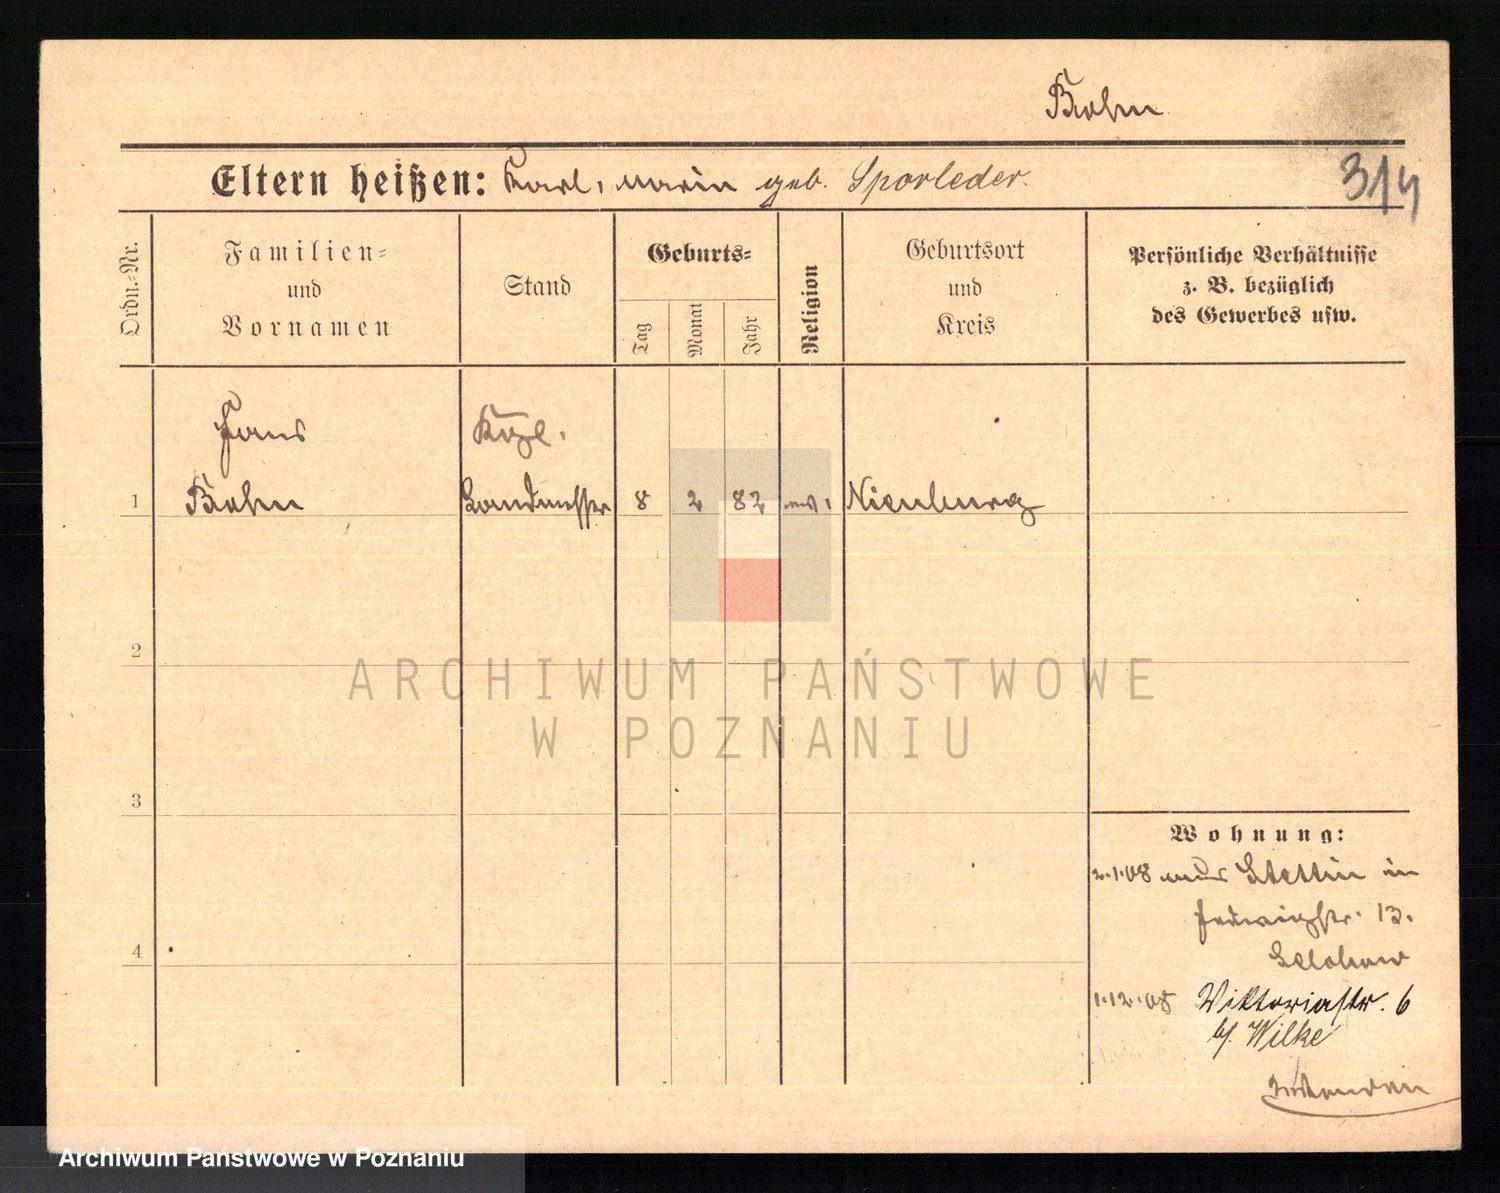 Bohn
314
Eltern heißen: Karl, Marie geb. Sporleder.
Ordn.-Nr.
Familien-
und
Vornamen
Stand
Geburts-
Tag
Monat
Jahr
Religion
Geburtsort
und
Kreis
Persönliche Verhältnisse
z. B. bezüglich
des Gewerbes usw.
Hans Kgl.
1 Bohn Landmesser 8 2 82 ev. Nienburg
2
3
4
Wohnung:
2.1.08 aus Stettin in
Hedwigstr. 13.
Selchow
1.12.08 Viktoriastr. 6
bei Wilke
ARCHIWUM PAŃSTWOWE
W POZNANIU
Archiwum Państwowe w Poznaniu